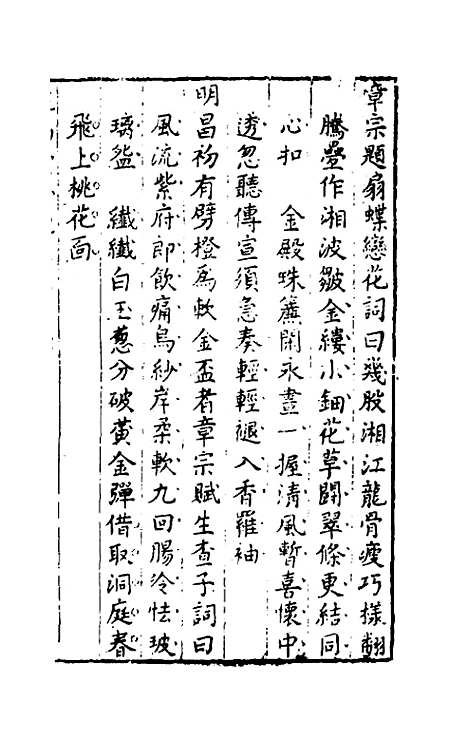 章宗題扇蝶戀花詞曰幾股湘江龍骨瘦巧樣翻
騰疊作湘波皺金縷小鈿花草鬪翠條更結同
心扣　金殿珠簾閑永晝一握清風暫喜懷中
透忽聽傳宣須急奏輕輕褪入香羅袖
明昌初有劈橙爲軟金盃者章宗賦生查子詞曰
風流紫府郎飲痛烏紗岸柔軟九回腸冷怯玻
璃盌　纖纖白玉蔥分破黃金彈借取洞庭春
飛上桃花面